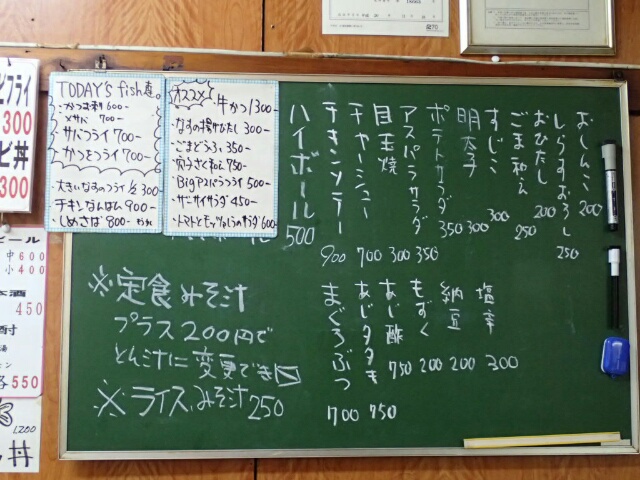 TODAY'S fish
かつお刺 600-
〆サバ 700-
サバフライ 700-
かつをフライ 700-
大きいなすのフライ 1/2 300-
チキンなんばん 900-
しめさば 800-
オススメ
牛かつ 1300-
なすの揚げびたし 300-
ごまどうふ 350-
穴子ざく和え 750-
Bigアスパラフライ 500-
サニーサイサラダ 450-
トマトとモッツァレラのサラダ 600-
おしんこ 200
しらすおろし 250
おひたし 200
ごま和え 250
すじこ 300
明太子 300
ポテトサラダ 350
アスパラサラダ 350
目玉焼 300
チャーシュー 700
チキンソテー 900
ハイボール 500
塩辛 300
納豆 200
もずく 200
あじ酢 750
あじタタキ 750
まぐろぶつ 700
※定食みそ汁
プラス200円で
とん汁に変更でき〼
※ライス、みそ汁 250
フライ
300
丼
300
ビール
中 600
小 400
本酒
450
550
1,200
丼